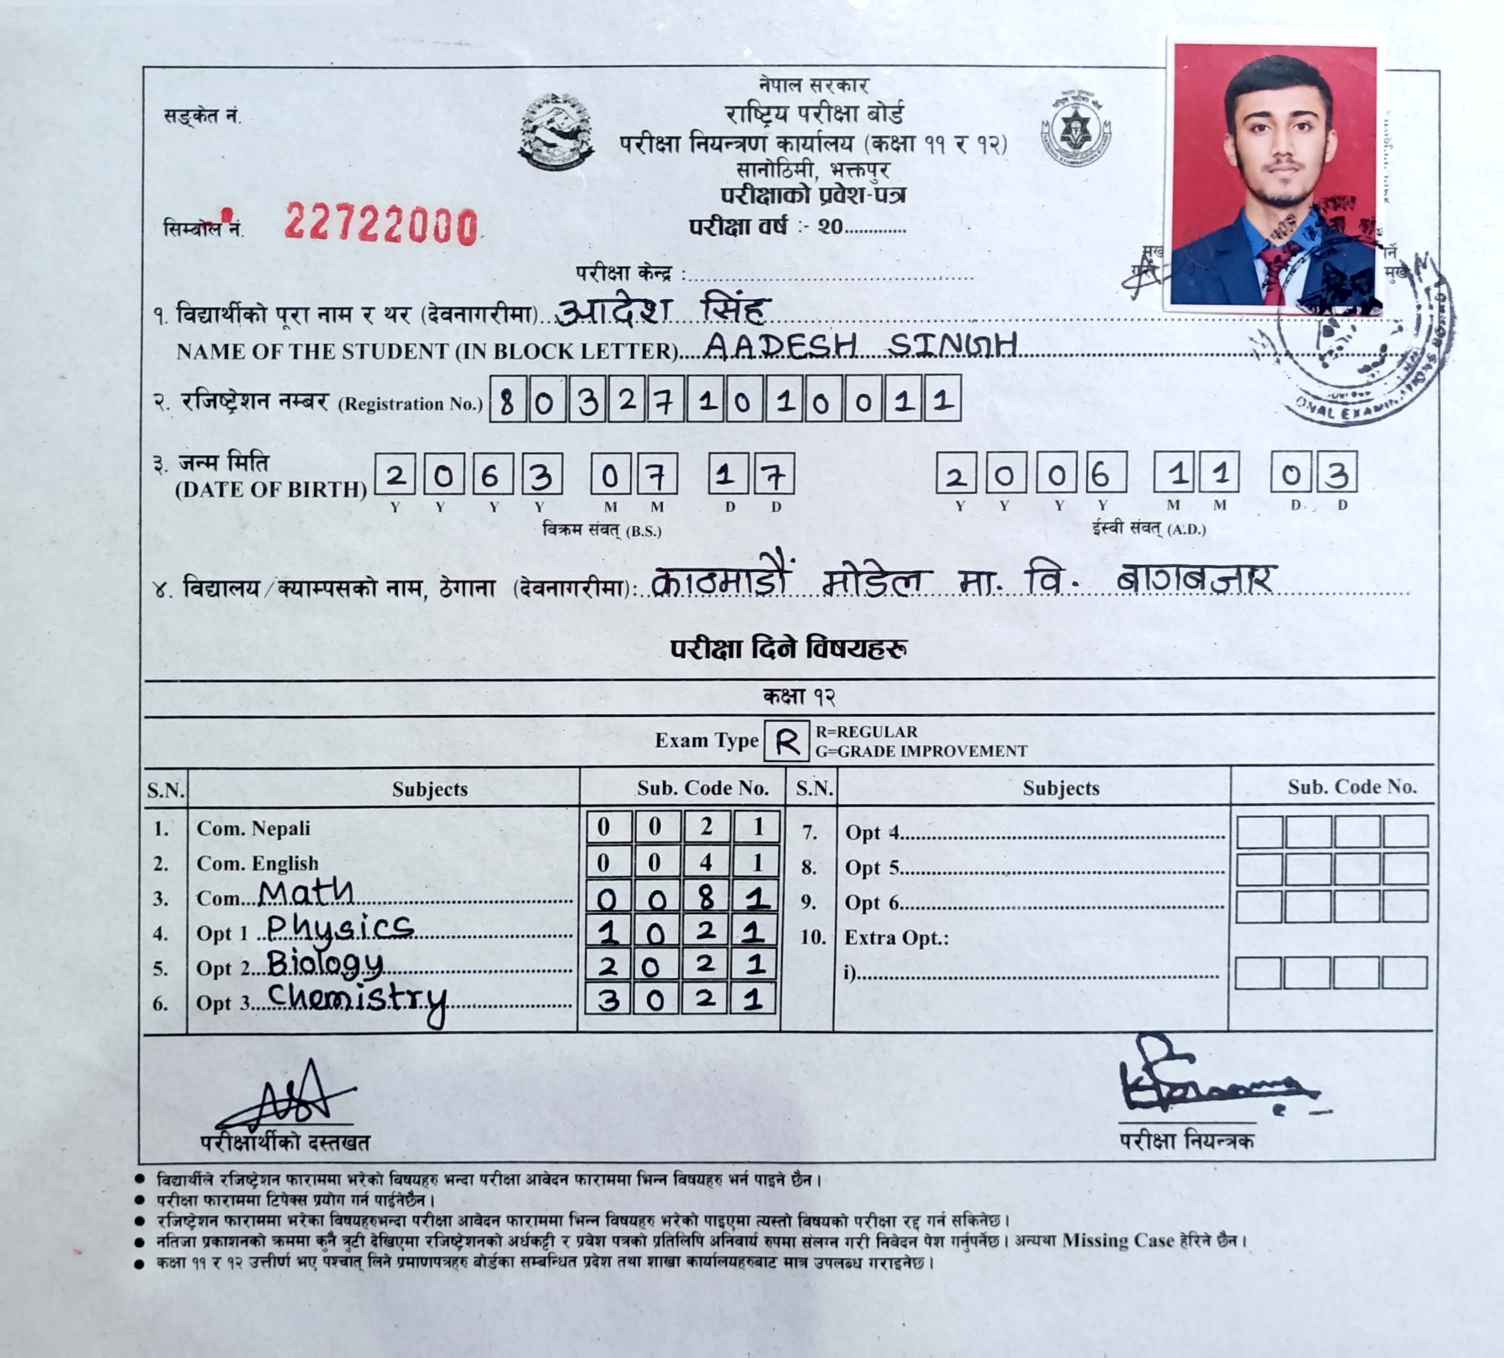 नेपाल सरकार
सङ्केत नं.
राष्ट्रिय परीक्षा बोर्ड
परीक्षा नियन्त्रण कार्यालय (कक्षा ११ र १२)
सानोठिमी, भक्तपुर
परीक्षाको प्रवेश-पत्र
सिम्बोल नं. 22722000
परीक्षा वर्ष :- २०.............
परीक्षा केन्द्र :......................................................
१. विद्यार्थीको पूरा नाम र थर (देवनागरीमा)..आदेश सिंह
NAME OF THE STUDENT (IN BLOCK LETTER)....AADESH SINGH
२. रजिष्ट्रेशन नम्बर (Registration No.) 8 0 3 2 7 1 0 1 0 0 1 1
३. जन्म मिति
(DATE OF BIRTH) 2 0 6 3 0 7 1 7 2 0 0 6 1 1 0 3
Y Y Y Y M M D D Y Y Y Y M M D D
विक्रम संवत् (B.S.) ईस्वी संवत् (A.D.)
४. विद्यालय/क्याम्पसको नाम, ठेगाना (देवनागरीमा):..काठमाडौं मोडेल मा. वि. बागबजार
परीक्षा दिने विषयहरू
कक्षा १२
Exam Type R R=REGULAR
G=GRADE IMPROVEMENT
S.N. Subjects Sub. Code No. S.N. Subjects Sub. Code No.
1. Com. Nepali 0 0 2 1 7. Opt 4
2. Com. English 0 0 4 1 8. Opt 5
3. Com...Math 0 0 8 1 9. Opt 6
4. Opt 1 ..Physics 1 0 2 1 10. Extra Opt.:
5. Opt 2...Biology 2 0 2 1 i)
6. Opt 3...Chemistry 3 0 2 1
परीक्षार्थीको दस्तखत परीक्षा नियन्त्रक
● विद्यार्थीले रजिष्ट्रेशन फाराममा भरेको विषयहरु भन्दा परीक्षा आवेदन फाराममा भिन्न विषयहरु भर्न पाइने छैन।
● परीक्षा फाराममा टिपेक्स प्रयोग गर्न पाईनेछैन।
● रजिष्ट्रेशन फाराममा भरेका विषयहरुभन्दा परीक्षा आवेदन फाराममा भिन्न विषयहरु भरेको पाइएमा त्यस्तो विषयको परीक्षा रद्द गर्न सकिनेछ।
● नतिजा प्रकाशनको क्रममा कुनै त्रुटी देखिएमा रजिष्ट्रेशनको अर्धकट्टी र प्रवेश पत्रको प्रतिलिपि अनिवार्य रुपमा संलग्न गरी निवेदन पेश गर्नुपर्नेछ। अन्यथा Missing Case हेरिने छैन।
● कक्षा ११ र १२ उत्तीर्ण भए पश्चात् लिने प्रमाणपत्रहरु बोर्डका सम्बन्धित प्रदेश तथा शाखा कार्यालयहरुबाट मात्र उपलब्ध गराइनेछ।